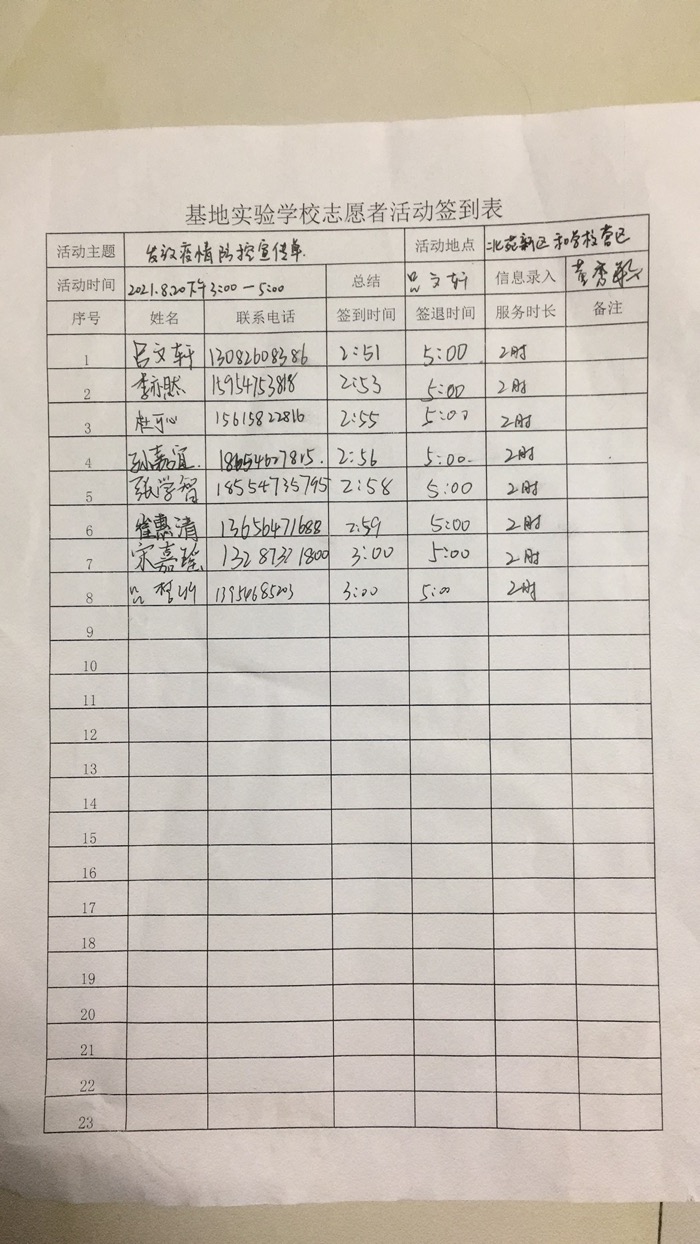 基地实验学校志愿者活动签到表
活动主题 发放疫情防控宣传单. 活动地点 北苑新区和学校营区
活动时间 2021.8.20下午3:00—5:00 总结 吕文轩 信息录入 黄秀敏
序号 姓名 联系电话 签到时间 签退时间 服务时长 备注
1 吕文轩 13082608386 2:51 5:00 2时
2 李亦然 15954753818 2:53 5:00 2时
3 杜可心 15615822816 2:55 5:00 2时
4 孙嘉宜. 18654627815. 2:56 5:00. 2时
5 张学智 18554735795 2:58 5:00 2时
6 崔惠清 13656471688 2:59 5:00 2时
7 宋嘉瑶 13287321800 3:00 5:00 2时
8 吕 13954685203 3:00 5:00 2时
9
10
11
12
13
14
15
16
17
18
19
20
21
22
23